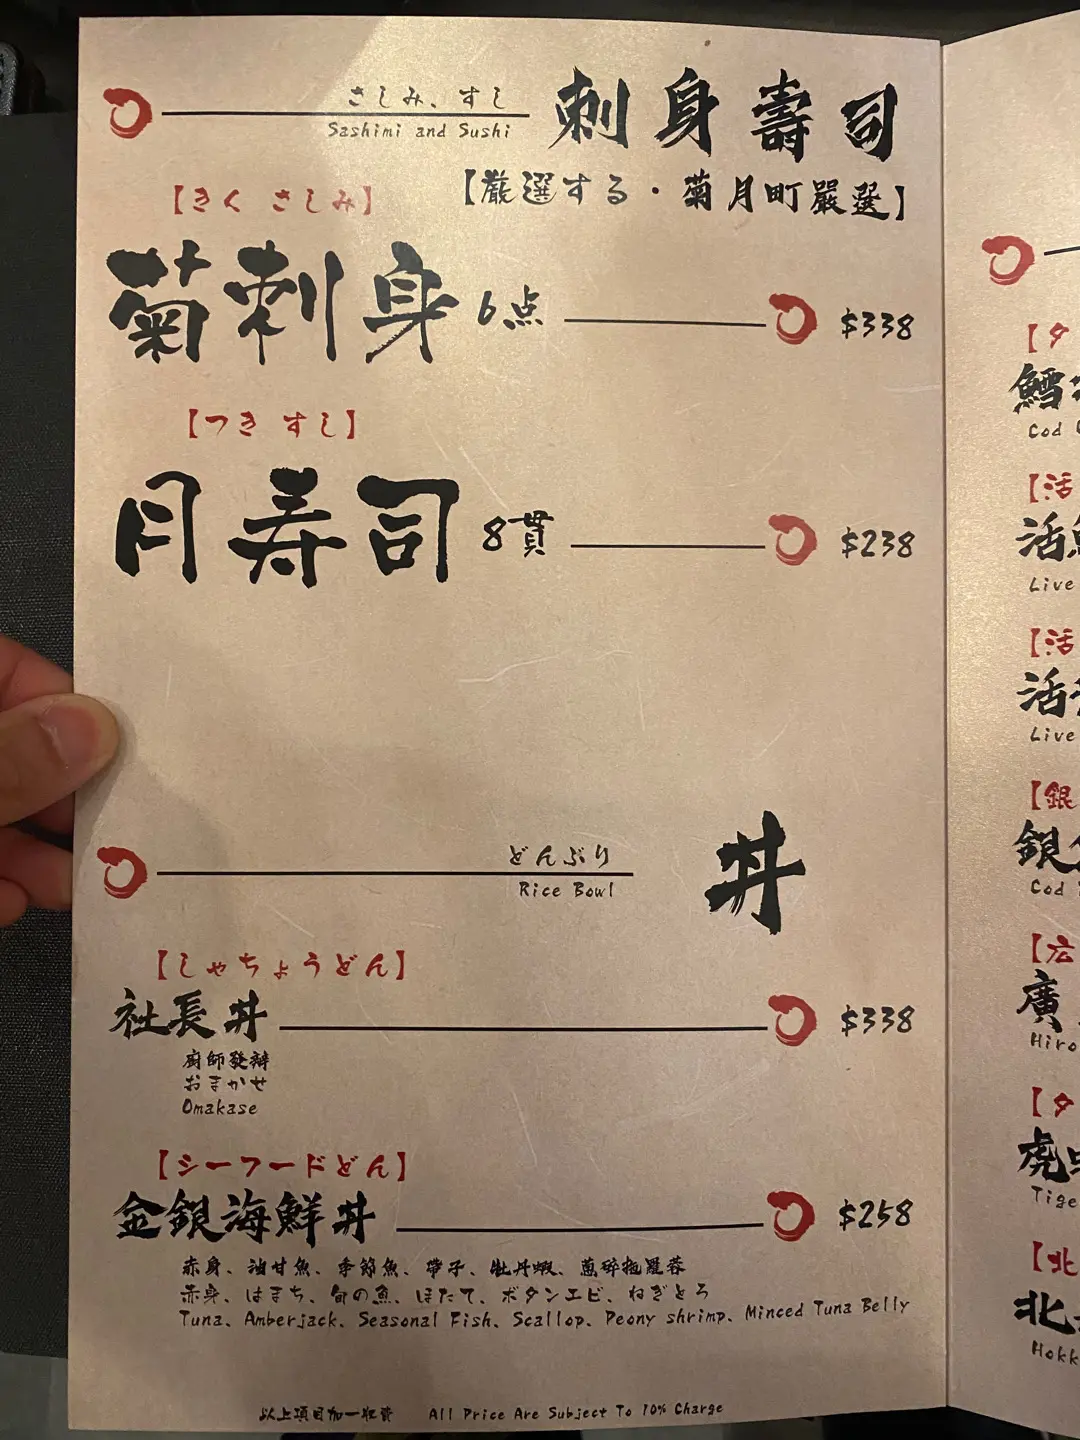 さしみ、すし
Sashimi and Sushi
刺身壽司
【厳選する・菊月町嚴選】
【きく さしみ】
菊刺身 6点 $338
【つき すし】
月寿司 8貫 $238
どんぶり
Rice Bowl
丼
【しゃちょうどん】
社長丼 $338
廚師發辦
おまかせ
Omakase
【シーフードどん】
金銀海鮮丼 $258
赤身、油甘魚、季節魚、帶子、牡丹蝦、蔥碎拖羅蓉
赤身、はまち、旬の魚、ほたて、ボタンエビ、ねぎとろ
Tuna、Amberjack、Seasonal Fish、Scallop、Peony shrimp、Minced Tuna Belly
以上項目加一收費 All Price Are Subject To 10% Charge
【タ
鱈
Cod
【活
活
Live
【活
活
Live
【銀
銀
Cod
【広
廣
Hiro
【タ
虎
Tige
【北
北
Hokk